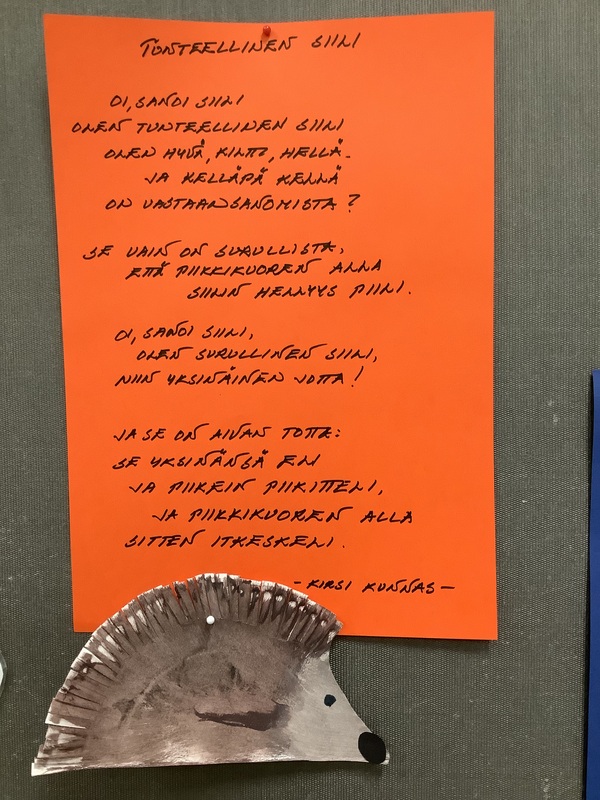 TUNTEELLINEN SIILI
OI, SANOI SIILI
OLEN TUNTEELLINEN SIILI
OLEN HYVÄ, KILTTI, HELLÄ.
JA KELLÄPÄ KELLÄ
ON VASTAANSANOMISTA?
SE VAIN ON SURULLISTA,
ETTÄ PIIKKIKUOREN ALLA
SIILIN HELLYYS PIILI.
OI, SANOI SIILI,
OLEN SURULLINEN SIILI,
NIIN YKSINÄINEN JOTTA!
JA SE ON AIVAN TOTTA:
SE YKSINÄNSÄ ELI
JA PIIKEIN PIIKITTELI,
JA PIIKKIKUOREN ALLA
SITTEN ITKESKELI.
- KIRSI KUNNAS -